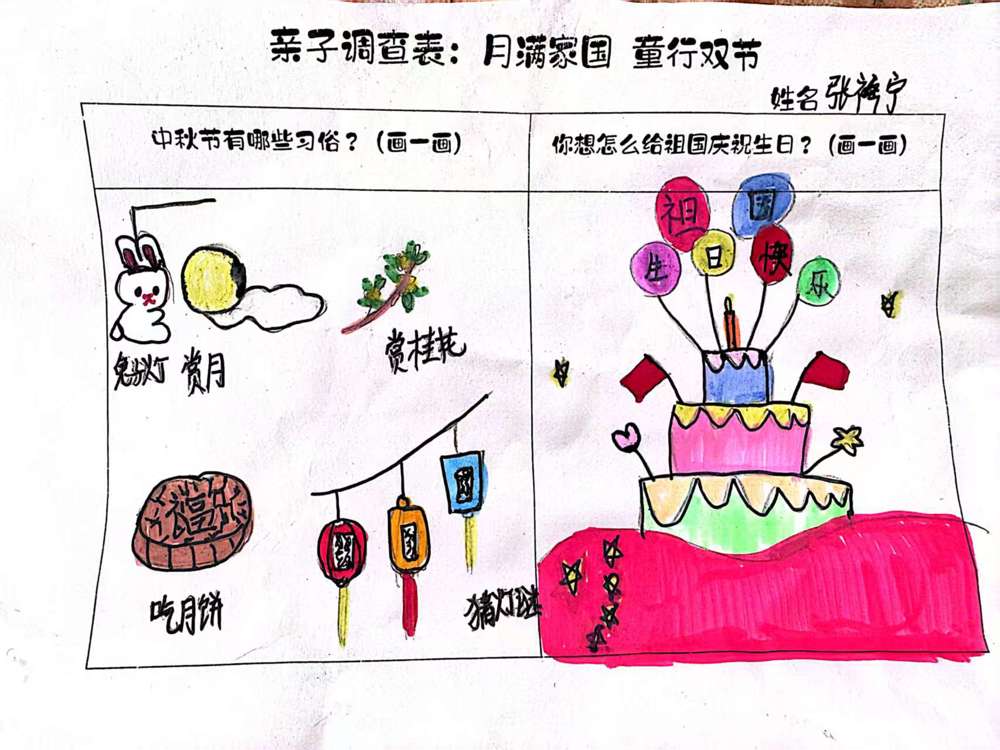 亲子调查表：月满家国 童行双节
姓名 张宁
中秋节有哪些习俗？（画一画）
兔灯 赏月
赏桂花
福
吃月饼
猜灯谜
你想怎么给祖国庆祝生日？（画一画）
祖国
生日快乐